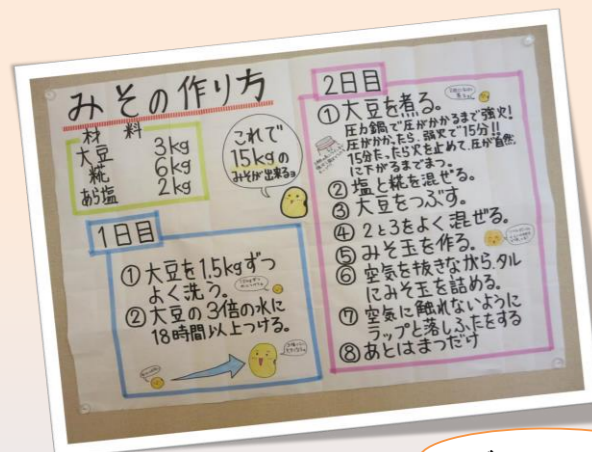 みその作り方
材料
大豆 3kg
糀 6kg
あら塩 2kg
これで
15kgの
みそが出来る
1日目
①大豆を1.5kgずつ
よく洗う。
②大豆の3倍の水に
18時間以上つける。
2日目
①大豆を煮る。
圧力鍋で圧がかかるまで強火!
圧がかかったら、弱火で15分!!
15分たったら火を止めて、圧が自然
に下がるまでまつ。
②塩と糀を混ぜる。
③大豆をつぶす。
④2と3をよく混ぜる。
⑤みそ玉を作る。
⑥空気を抜きながら、タル
にみそ玉を詰める。
⑦空気に触れないように
ラップと落しぶたをする
⑧あとはまつだけ